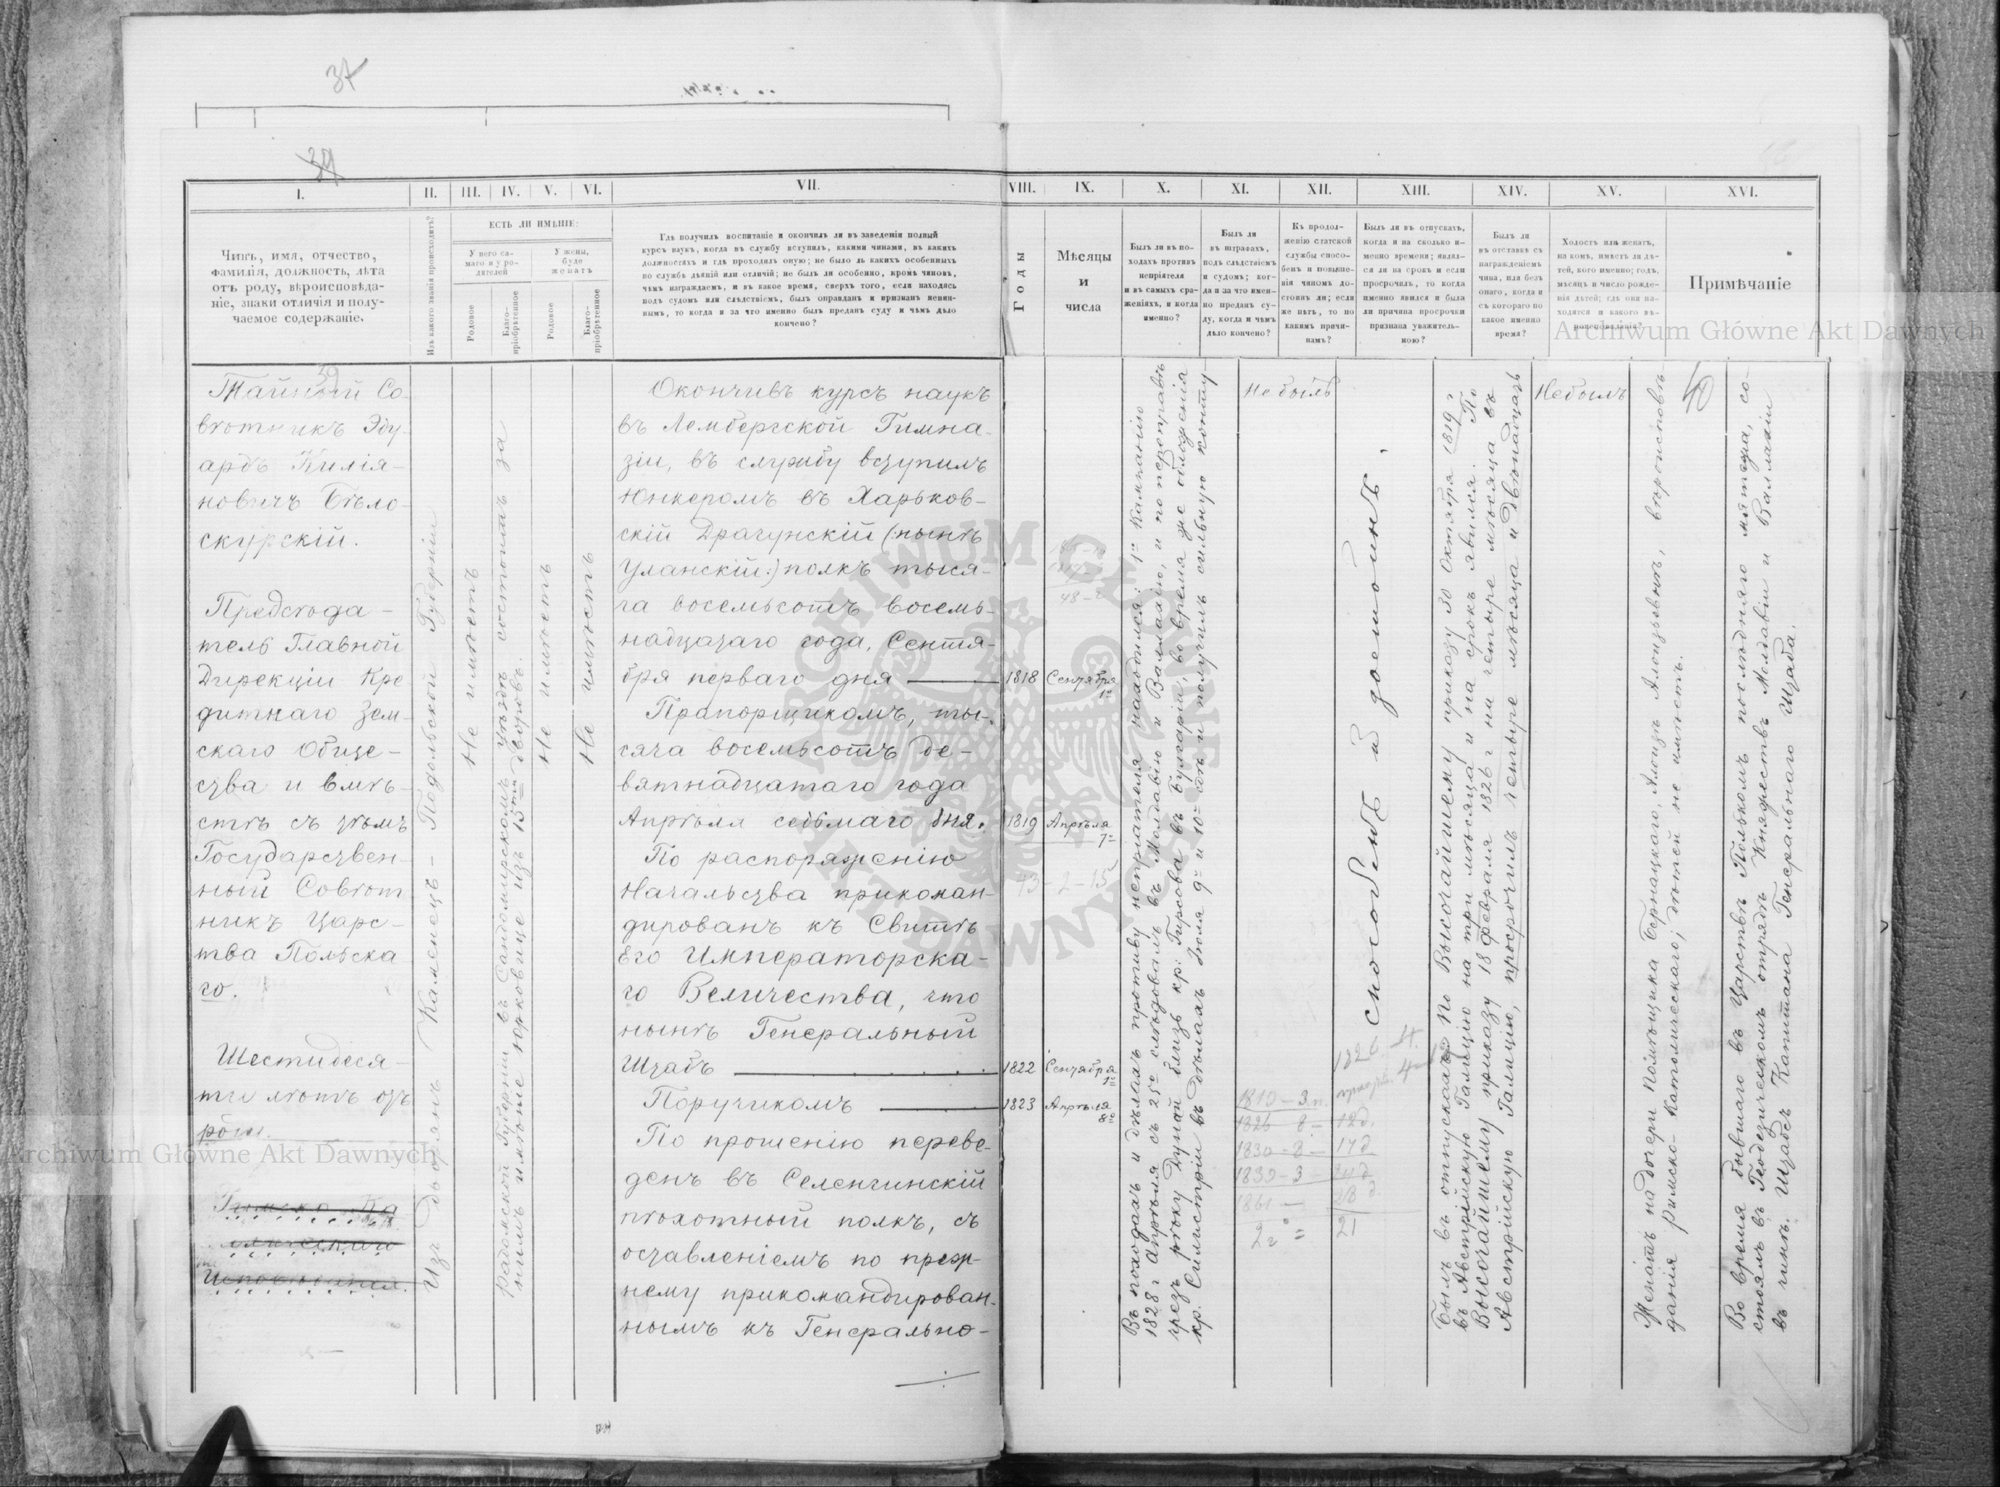 37
39
I.
II.
III.
IV.
V.
VI.
VII.
VIII.
IX.
X.
XI.
XII.
XIII.
XIV.
XV.
XVI.
Чинъ, имя, отчество,
фамилія, должность, лѣта
отъ роду, вѣроисповѣда-
ніе, знаки отличія и полу-
чаемое содержаніе.
Изъ какого званія происходитъ?
ЕСТЬ ЛИ ИМѢНІЕ:
У него са-
маго и у ро-
дителей
У жены,
буде
женатъ
Родовое
Благо-
пріобрѣтенное
Родовое
Благо-
пріобрѣтенное
Гдѣ получилъ воспитаніе и окончилъ ли въ заведеніи полный
курсъ наукъ, когда въ службу вступилъ, какими чинами, въ какихъ
должностяхъ и гдѣ проходилъ оную; не было ль какихъ особенныхъ
по службѣ дѣяній или отличій; не былъ ли особенно, кромѣ чиновъ,
чѣмъ награждаемъ, и въ какое время, сверхъ того, если находясь
подъ судомъ или слѣдствіемъ, былъ оправданъ и признанъ невин-
нымъ, то когда и за что именно былъ преданъ суду и чѣмъ дѣло
кончено?
Годы
Мѣсяцы
и
числа
Былъ ли въ по-
ходахъ противъ
непріятеля
и въ самыхъ сра-
женіяхъ, и когда
именно?
Былъ ли
въ штрафахъ,
подъ слѣдствіемъ
и судомъ; ког-
да и за что имен-
но преданъ су-
ду, когда и чѣмъ
дѣло кончено?
Къ продол-
женію статской
службы спосо-
бенъ и повыше-
нія чиномъ до-
стоинъ ли; если
же нѣтъ, то по
какимъ причи-
намъ?
Былъ ли въ отпускахъ,
когда и на сколько и-
менно времени; являл-
ся ли на срокъ и если
просрочилъ, то когда
именно явился и была
ли причина просрочки
признана уважитель-
ною?
Былъ ли
въ отставкѣ съ
награжденіемъ
чина, или безъ
онаго, когда и
съ котораго по
какое именно
время?
Холостъ или женатъ,
на комъ, имѣетъ ли дѣ-
тей, кого именно; годъ,
мѣсяцъ и число рожде-
нія дѣтей; гдѣ они на-
ходятся и какого вѣ-
роисповѣданія?
Примѣчаніе
Archiwum Główne Akt Dawnych
39
Тайный Со-
вѣтникъ Эду-
ардъ Килія-
новичъ Бѣло-
скурскій.
Предсѣда-
тель Главной
Дирекціи Кре-
дитнаго Зем-
скаго Обще-
ства и вмѣ-
стѣ съ тѣмъ
Государствен-
ный Совѣт
никъ Царс-
тва Польска
го.
Шестидеся-
ти лѣтъ отъ
роду.
Римско-Ка
толическаго
Исповѣданія.
Изъ дворянъ Каменецъ-Подольской Губерніи
Не имѣетъ
Радомской Губерніи въ Сандомирскомъ уѣздѣ состоитъ за
нимъ имѣніе Юрковице изъ 13ти дворовъ.
Не имѣетъ
Не имѣетъ
Окончивъ курсъ наукъ
въ Лембергской Гимна-
зіи, въ службу вступилъ
Юнкеромъ въ Харьков-
скій Драгунскій (нынѣ
Уланскій:) полкъ тыся-
га восемьсотъ восемь-
надцатаго года, Сентя-
бря перваго дня
Прапорщикомъ, ты-
сяча восемьсотъ де-
вятнадцатаго года
Апрѣля седьмаго дня.
По распоряженію
Начальства прикоман-
дированъ къ Свитѣ
Его Императорска-
го Величества, что
нынѣ Генеральный
Штабъ
Поручикомъ
По прошенію переве-
денъ въ Селенгинскій
пѣхотный полкъ, съ
оставленіемъ по преж-
нему прикомандирован-
нымъ къ Генерально-
1818 Сентября 1го
1819 Апрѣля 7го
43-2-15
1822 Сентября 1го
1823 Апрѣля 8го
Въ походахъ и дѣлахъ противу непріятеля находился: 1е Кампанію
1828 г. Апрѣля съ 25го слѣдовалъ въ Молдавію и Валлахію, и по переправѣ
чрезъ рѣку Дунай близь кр: Гирсова въ Булгаріи, во время же облоденія
кр. Силистріи въ дѣлахъ Іюля 9го и 10го дѣ и получилъ сильную конту-
Не былъ
1810-3
1826 8 - 12д.
1830-8- 17д
1839-3- 24д
1861- 28д.
2г = 21
способенъ и достоинъ.
1826. 4.
Былъ въ отпускахъ: По Высочайшему приказу 30 Октября 1819 г
въ Австрійскую Галицію на три мѣсяца и на срокъ явился. По
Высочайшему приказу 18 февраля 1826 г на четыре мѣсяца въ
Австрійскую Галицію, просрочилъ четыре мѣсяца и двѣнадцать
Не былъ
Женатъ на дочери помѣщика Бернацкаго, Алоизъ Алоизьевнѣ, вѣроисповѣ-
данія Римско-Католическаго; дѣтей не имѣетъ.
40
Во время бывшаго въ Царствѣ Польскомъ послѣдняго мятежа, со-
стоялъ въ Геодезическомъ отрядѣ Княжествъ Молдавіи и Валлахіи
въ чинѣ Штабсъ Капитана Генеральнаго Штаба.
ARCHIWUM GŁÓWNE AKT DAWNYCH
Archiwum Główne Akt Dawnych